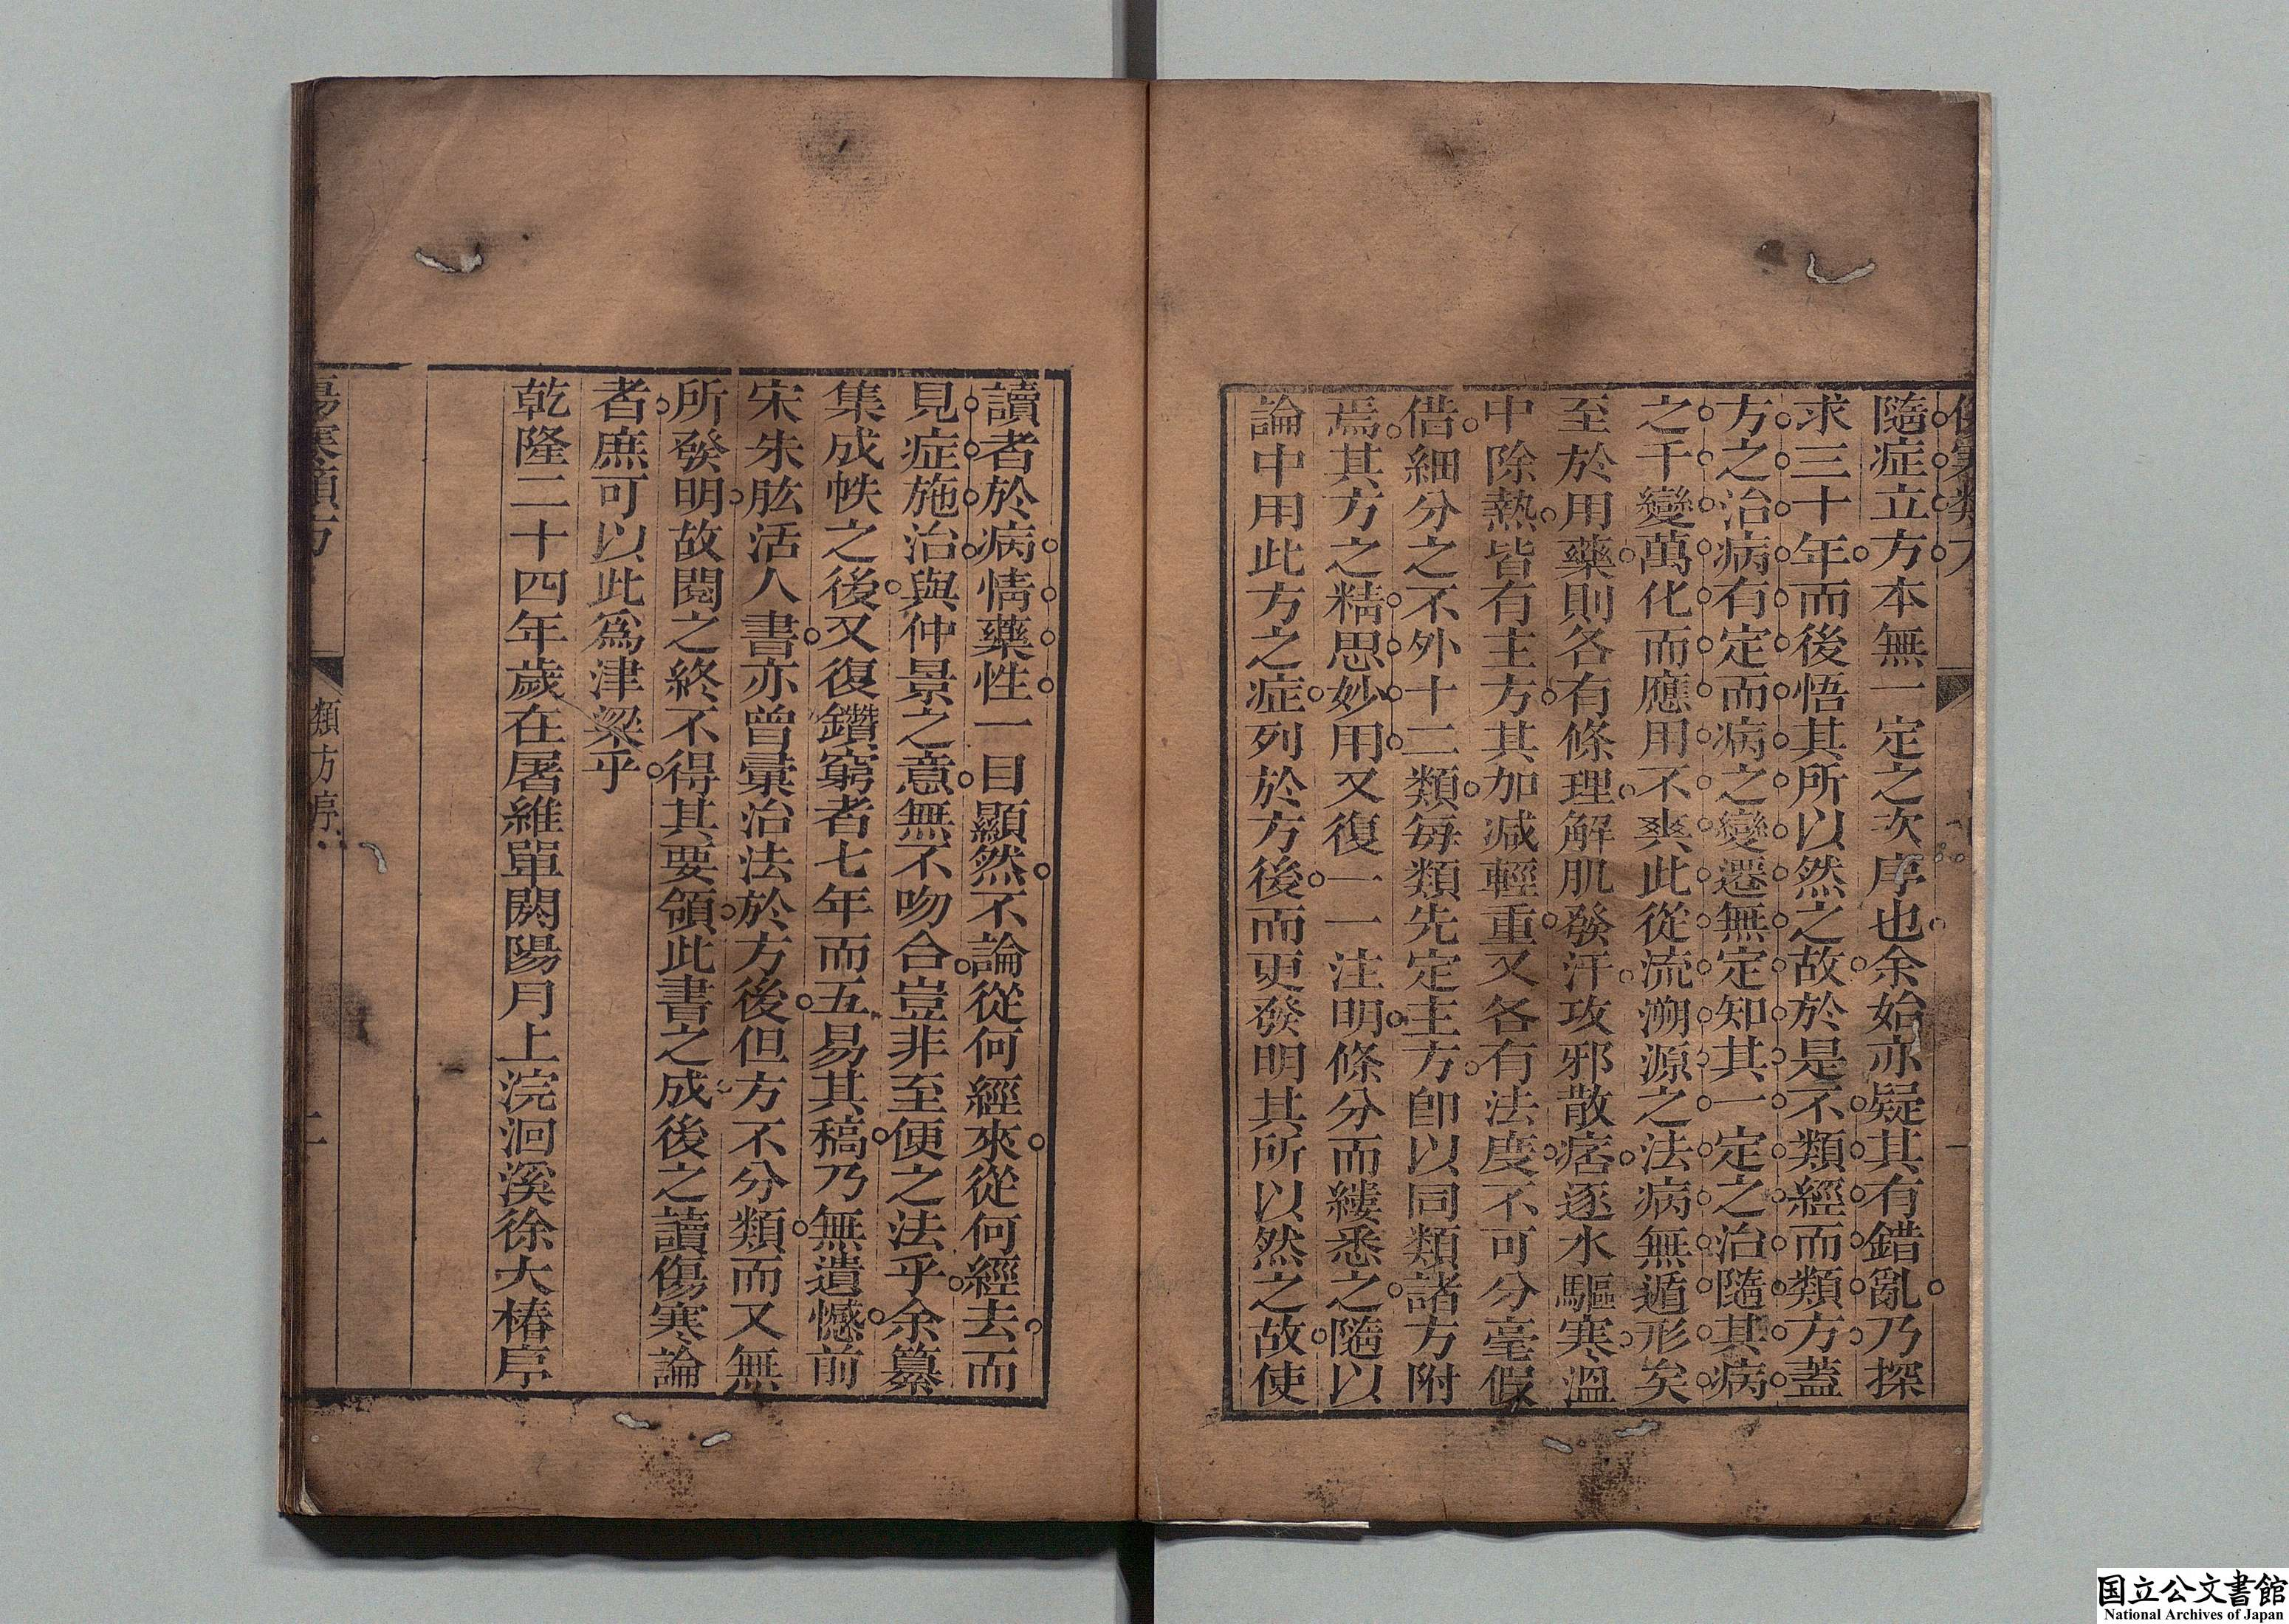 傷寒類方
隨症立方本無一定之次序也余始亦疑其有錯亂乃探
求三十年而後悟其所以然之故於是不類經而類方蓋
方之治病有定而病之變遷無定知其一定之治隨其病
之千變萬化而應用不爽此從流溯源之法病無遁形矣
至於用藥則各有條理解肌發汗攻邪散痞逐水驅寒溫
中除熱皆有主方其加減輕重又各有法度不可分毫假
借細分之不外十二類每類先定主方卽以同類諸方附
焉其方之精思妙用又復一一注明條分而縷悉之隨以
論中用此方之症列於方後而更發明其所以然之故使
讀者於病情藥性一目顯然不論從何經來從何經去而
見症施治與仲景之意無不吻合豈非至便之法乎余纂
集成帙之後又復鑽窮者七年而五易其稿乃無遺憾前
宋朱肱活人書亦曾彙治法於方後但方不分類而又無
所發明故閱之終不得其要領此書之成後之讀傷寒論
者庶可以此爲津梁乎
乾隆二十四年歲在屠維單閼陽月上浣洄溪徐大椿序
傷寒類方
類方序
二
国立公文書館
National Archives of Japan